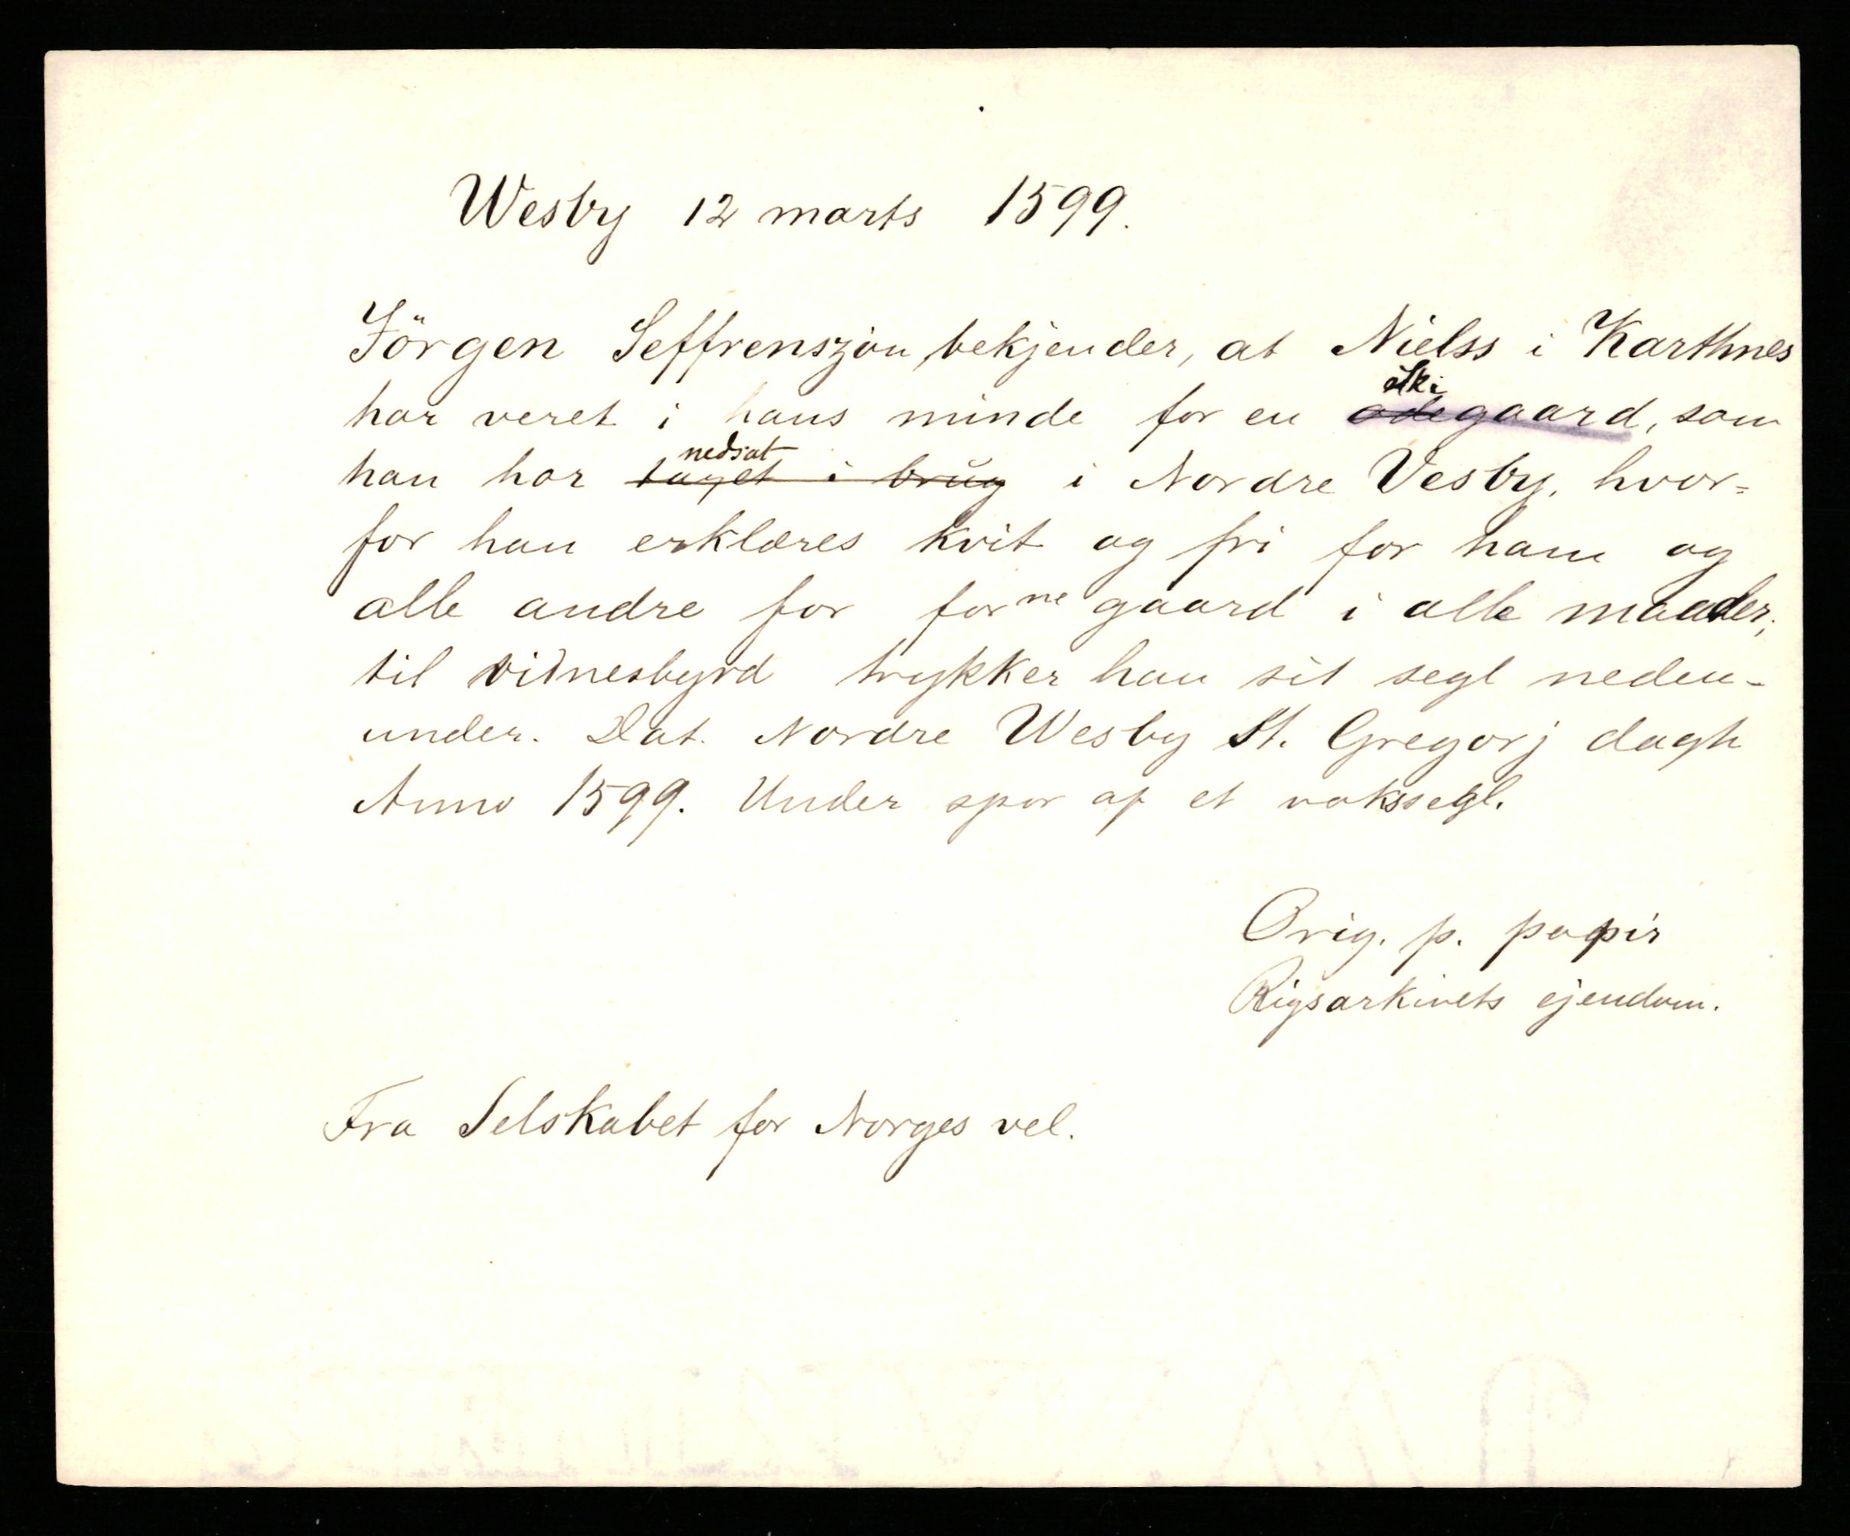 Wesby 12 marts 1599.
Jörgen Seffrenszøn bekjender, at Nielss i Karthnes
har veret i hans minde for en ödegaard, som
han har nedsat taget i brug i Nordre Vesby, hvor=
for han erklæres kvit og fri for ham og
alle andre for forne gaard i alle maader;
til vidnesbyrd trykker han sit segl neden-
under. Dat. Nordre Wesby St. Gregorj dagh
Anno 1599. Under spor af et vokssegl.
Orig. p. papir
Rigsarkivets ejendom.
Fra Selskabet for Norges vel.